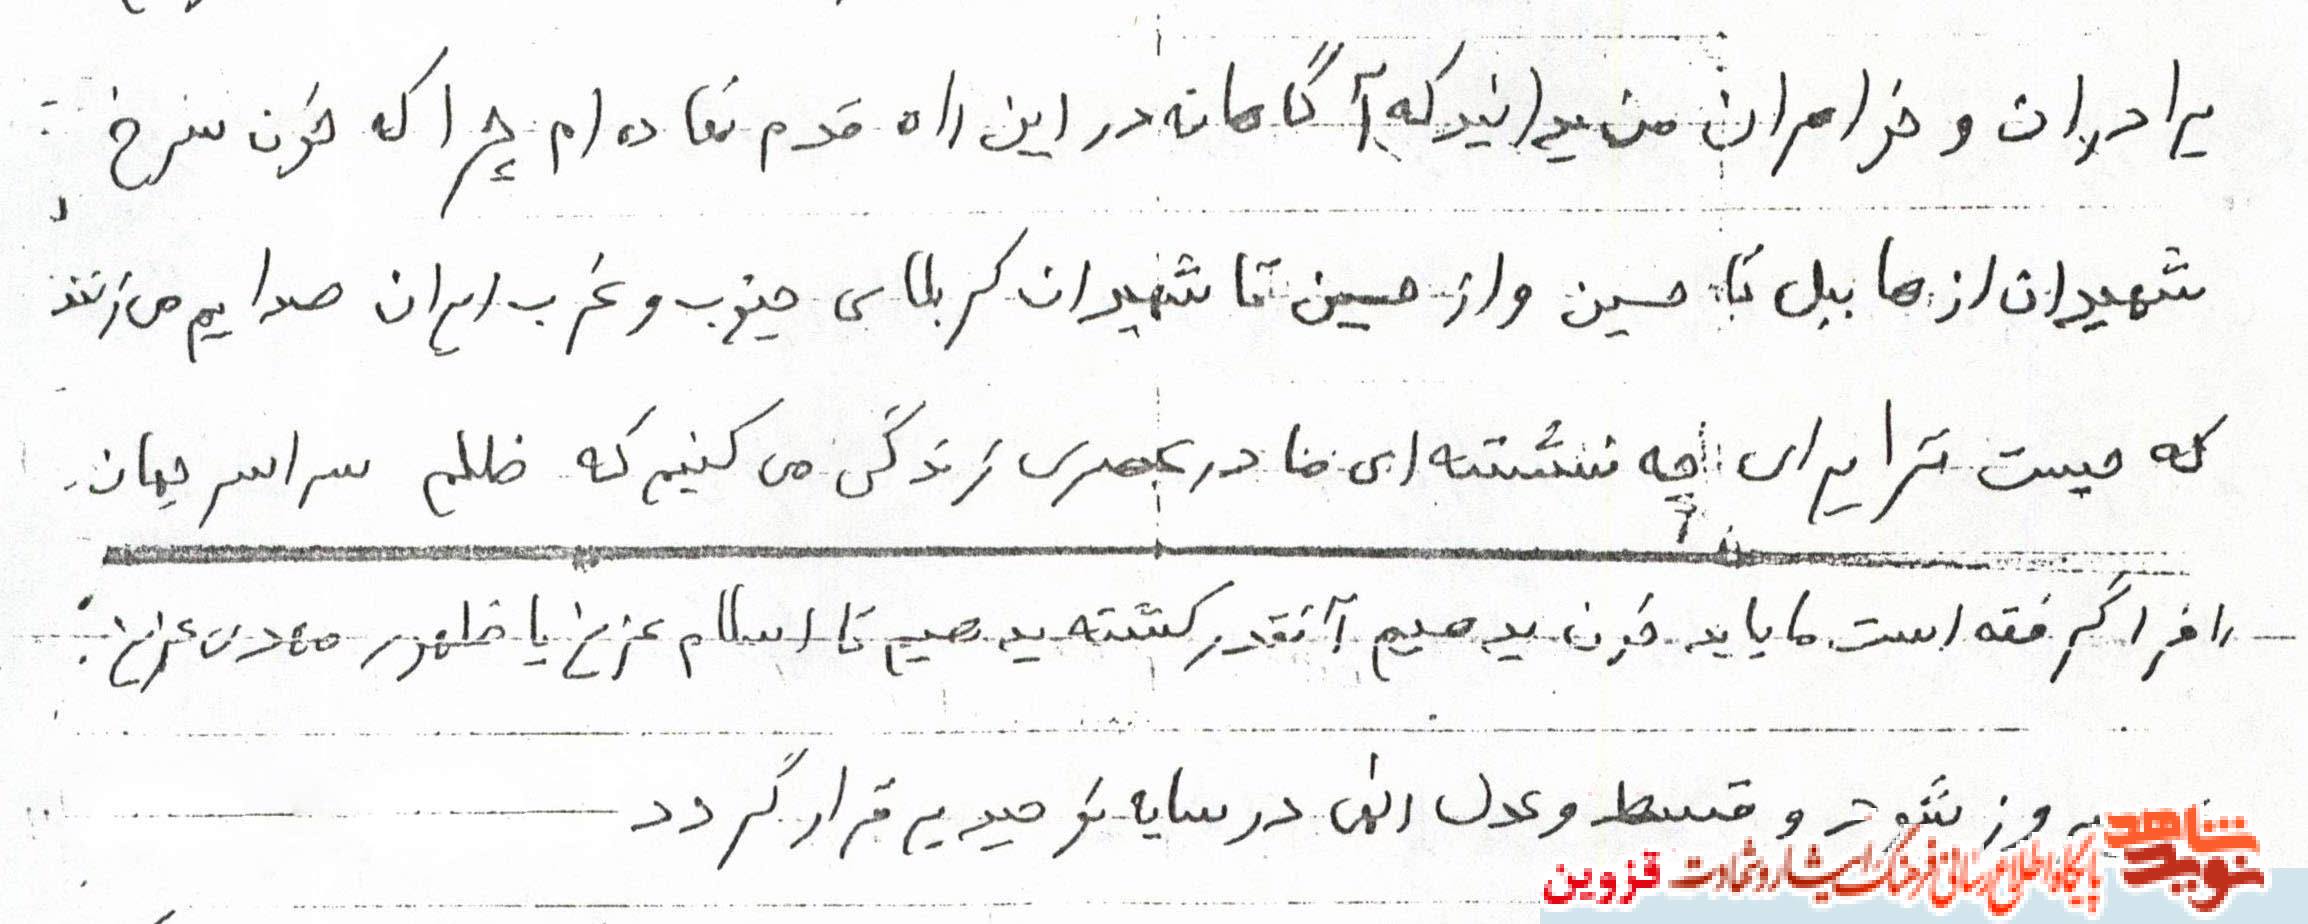 برادران و خواهران من بدانید که آگاهانه در این راه قدم نهاده ام چرا که خون سرخ
شهیدان از هابیل تا حسین و از حسین تا شهیدان کربلای جنوب و غرب ایران صدایم می زنند
که چیست ترا برای چه نشسته ای ما در عصری زندگی می کنیم که ظلم سراسر جهان
را فراگرفته است ما باید خون بدهیم آنقدر کشته بدهیم تا اسلام عزیز با ظهور مهدی عزیز
پیروز شود و قسط و عدل الهی در سایه توحید برقرار گردد
نوید شاهد
پایگاه اطلاع رسانی فرهنگ ایثار و شهادت قزوین